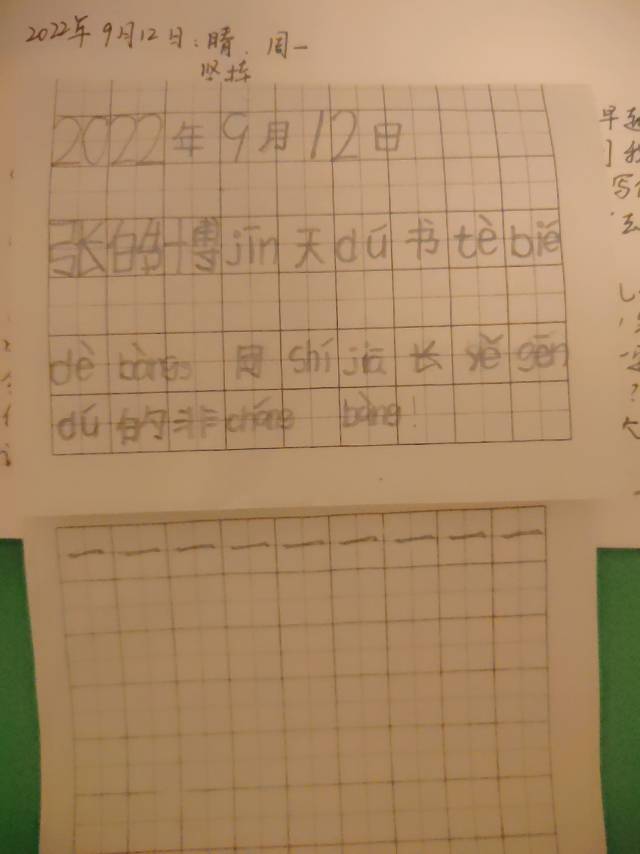 2022年9月12日:晴. 周一
坚持
2022年9月12日
张 博jīn天dú书tè bié
dè bàng shí jiā 长 yě gēn
dú 的非cháng bàng!
早
写
去
?
个
一 一 一 一 一 一 一 一 一